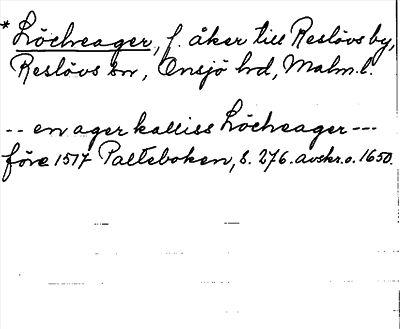 * Löcheager, f. åker till Reslövs by,
Reslövs sn, Onsjö hd, Malm. l.
-- en ager kalliss Löcheager ---
före 1517 Palteboken, s. 276. avskr. o. 1650.